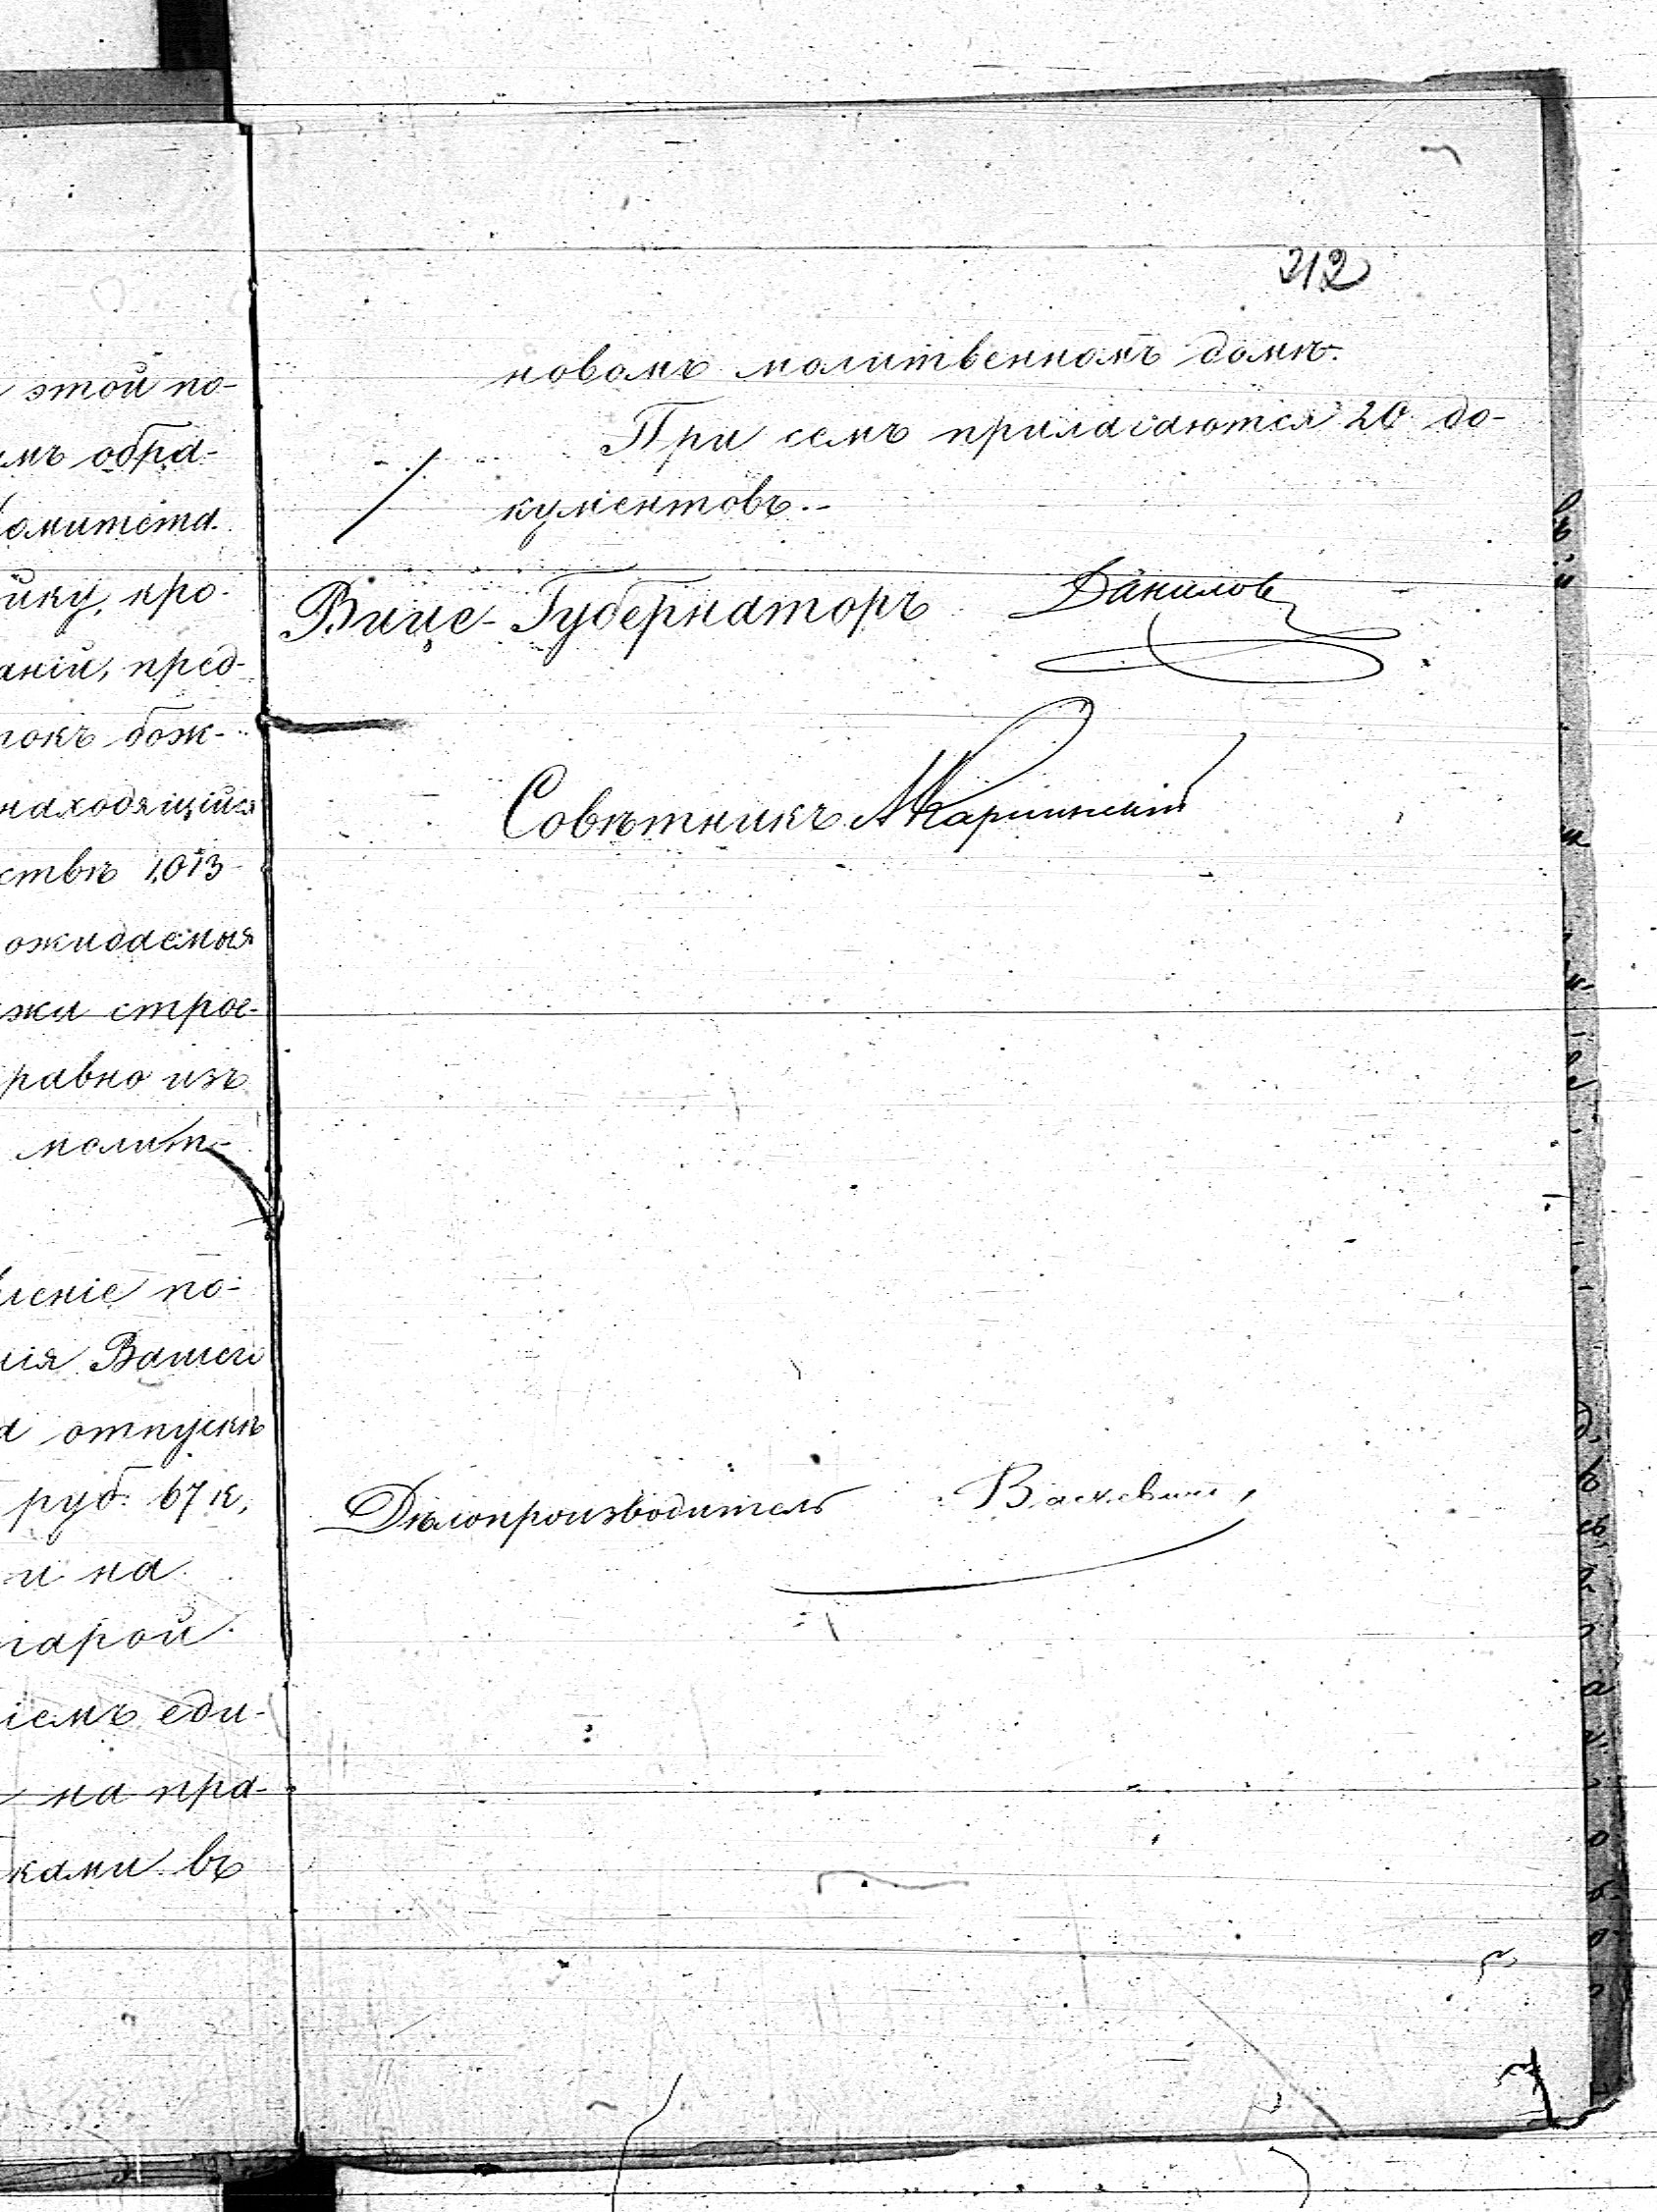 этой по-
мъ обра-
комитета
йку, кро-
аній, пред-
токъ бож-
находящійся
ствѣ 1,013
ожидаемыя
жи строе-
равно изъ
молит-
леніе по-
нія Вашего
а отпускъ
руб. 67 к,
и на
старой
іемъ еди-
на пра-
ками въ
212
новомъ молитвенномъ домѣ.
При семъ прилагаются 20 до-
кументовъ.-
Вице-Губернаторъ Данилов
Совѣтникъ
Дѣлопроизводитель